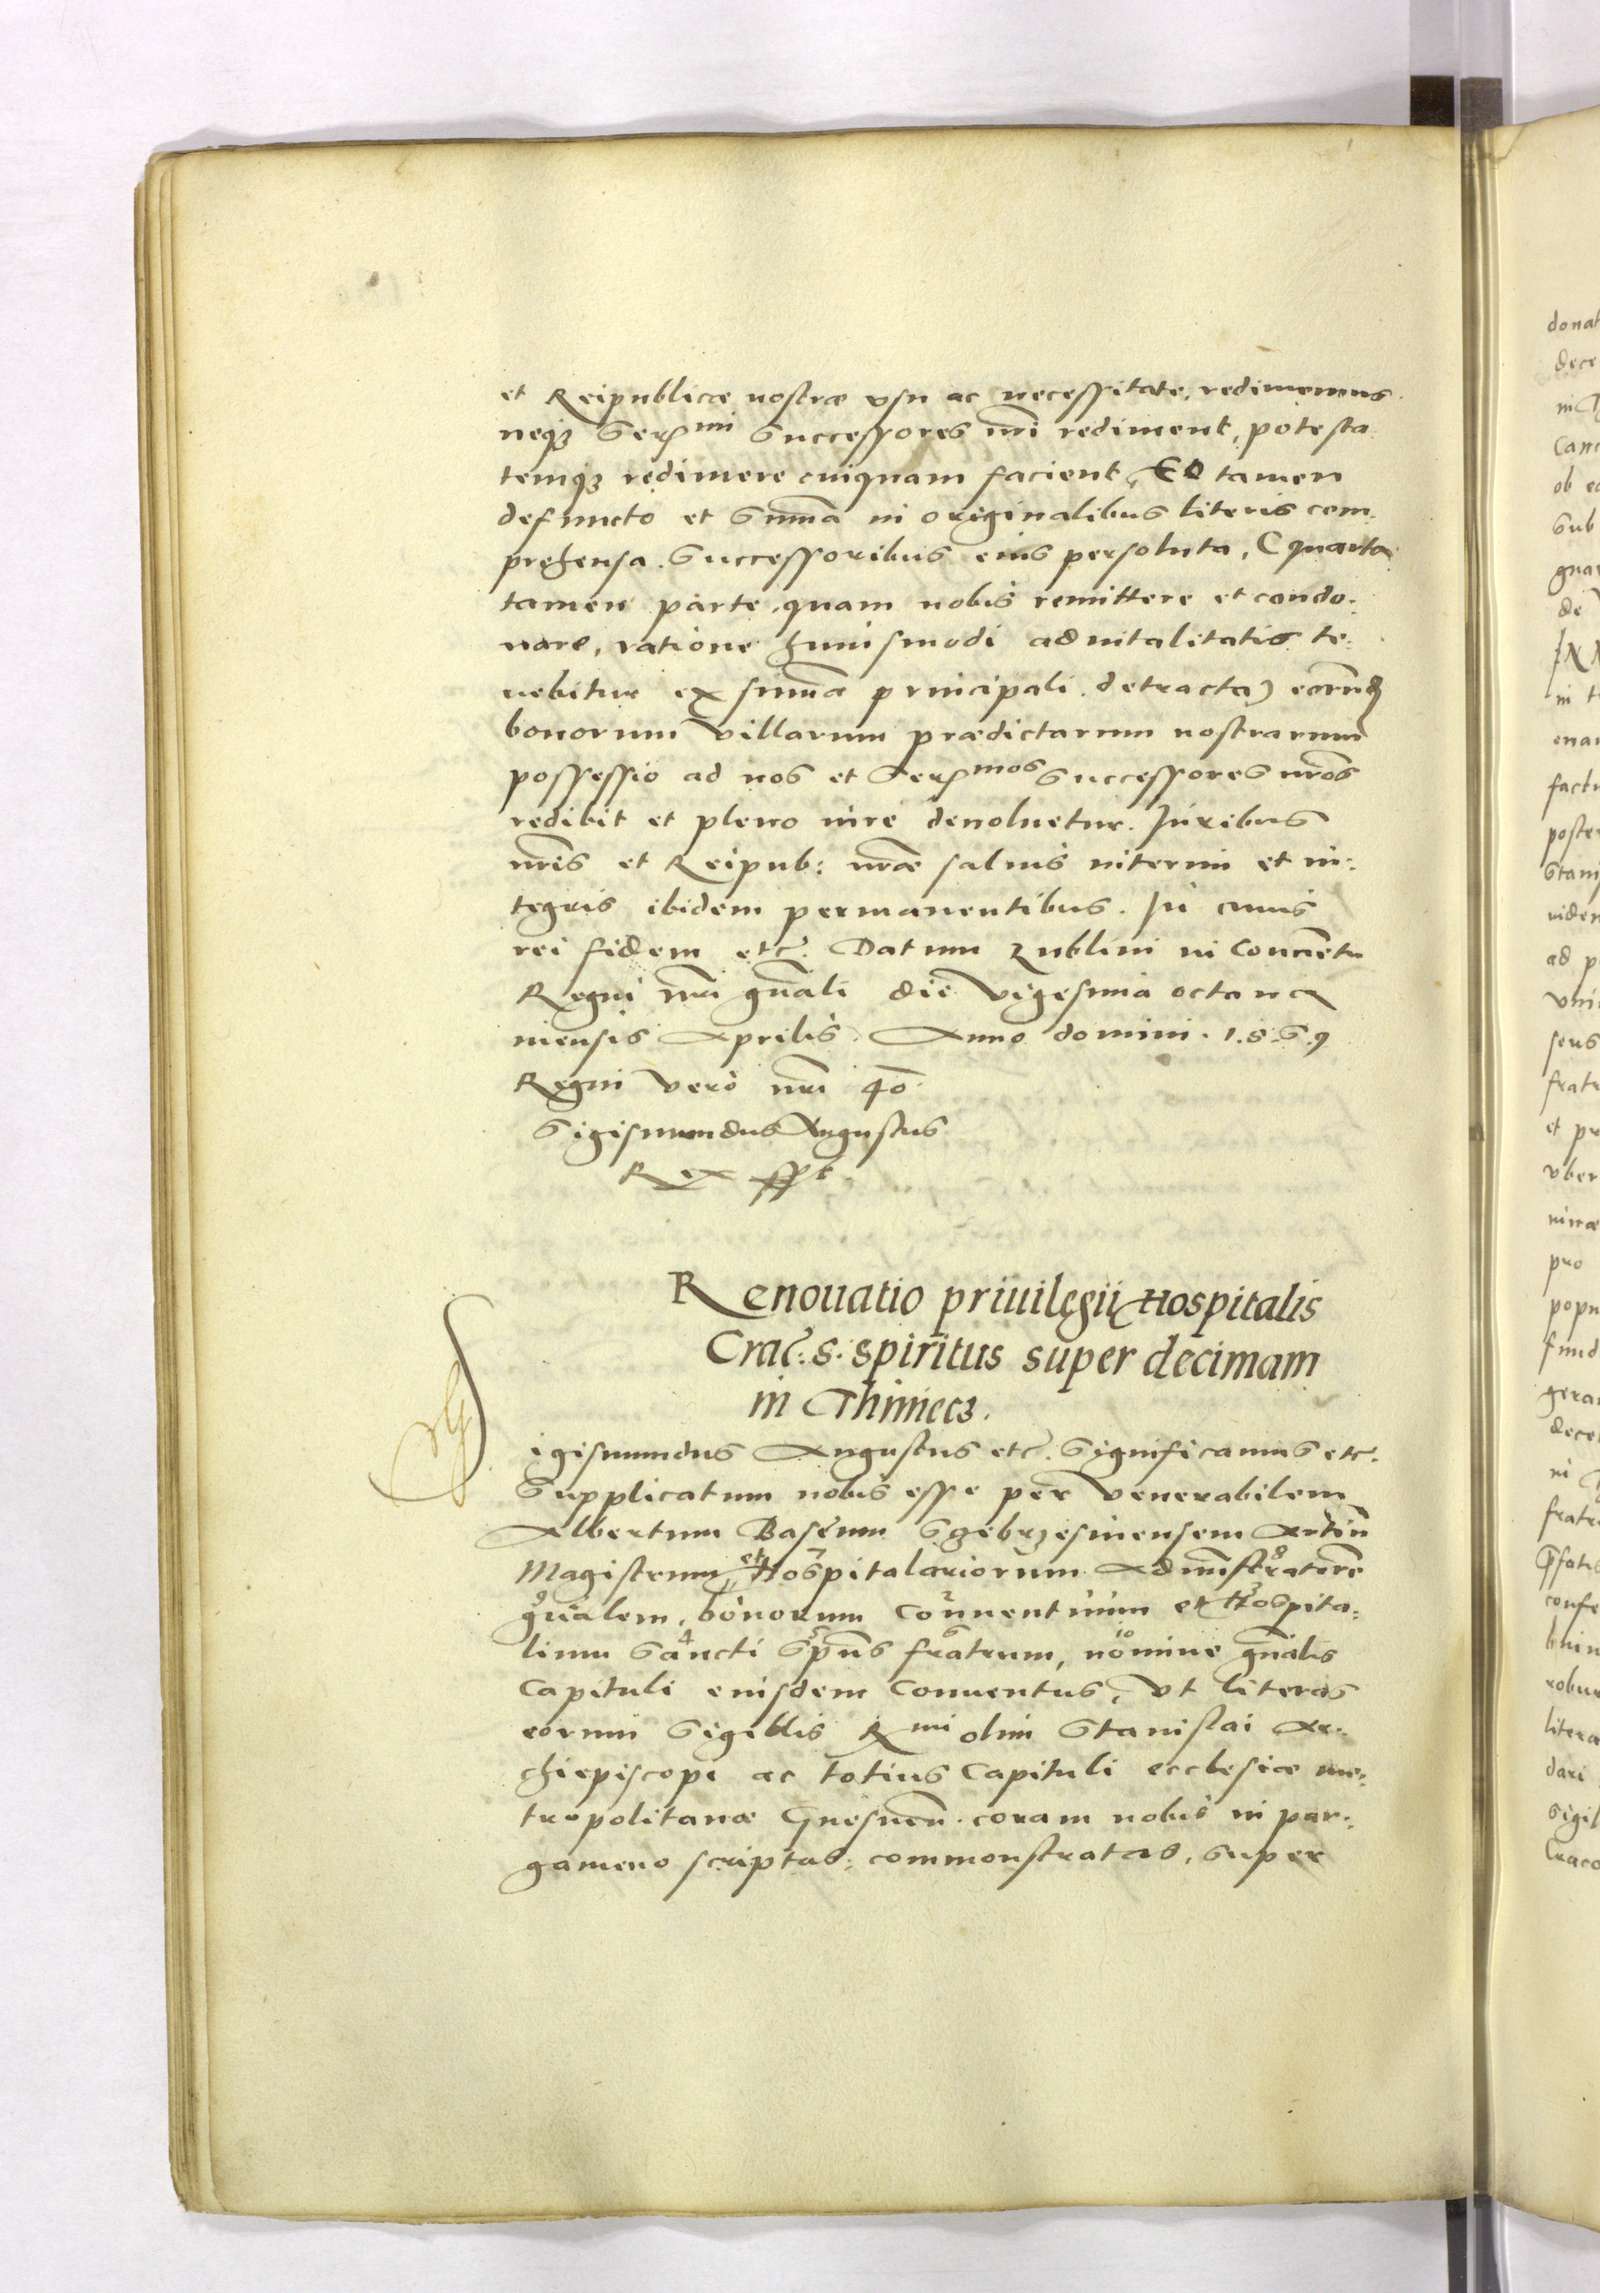 et Reipublicæ nostræ vsu ac necessitate, redimemus
neqȝ Serᵐⁱ Successores nr̃i rediment, potesta
temqȝ redimere cuiquam facient, Eo tamen
defuncto et Sum̃a in originalibus literis com-
prehensa Successoribus eius persoluta, (quarta
tamen parte, quam nobis remittere et condo-
nare, ratione huiusmodi aduitalitatis te-
nebitur ex sum̃a principali detracta)
bonorum villarum prædictarum nostrarum
possessio ad nos et Serᵐᵒˢ Successores nr̃os
redibit et pleno iure deuoluetur. Iuribus
nr̃is et Reipub: nr̃æ saluis interim et in-
tegris ibidem permanentibus. In cuius
rei fidem etc̃. Datum Lublini in Conuentu
Regni nr̃i gñali die Vigesima octaua
mensis Aprilis Anno domini 1.5.6.9
Regni vero nr̃i 40
Sigismundus Augustus
Rex sspt
Renouatio priuilegii Hospitalis
Crac̃: S. Spiritus super decimam
in Thiniecz.
Sigismundus Augustus etc̃. Significamus etc.
Supplicatum nobis esse per Venerabilem
Albertum Basêum Sgebrzesinensem Artiũ
Magistrum, et Hospitalariorum Administratorem
gñalem, bonorum Conuentuum et Hospita-
lium Sancti Sp̃us fratrum, nomine gñalis
Capituli eiusdem Conuentus, Vt literas
eorum Sigillis Rᵐⁱ olim Stanislai Ar-
chiepiscopi ac totius Capituli ecclesiæ me-
tropolitanæ Gnesneñ. coram nobis in per-
gameno scriptas, commonstratas, super